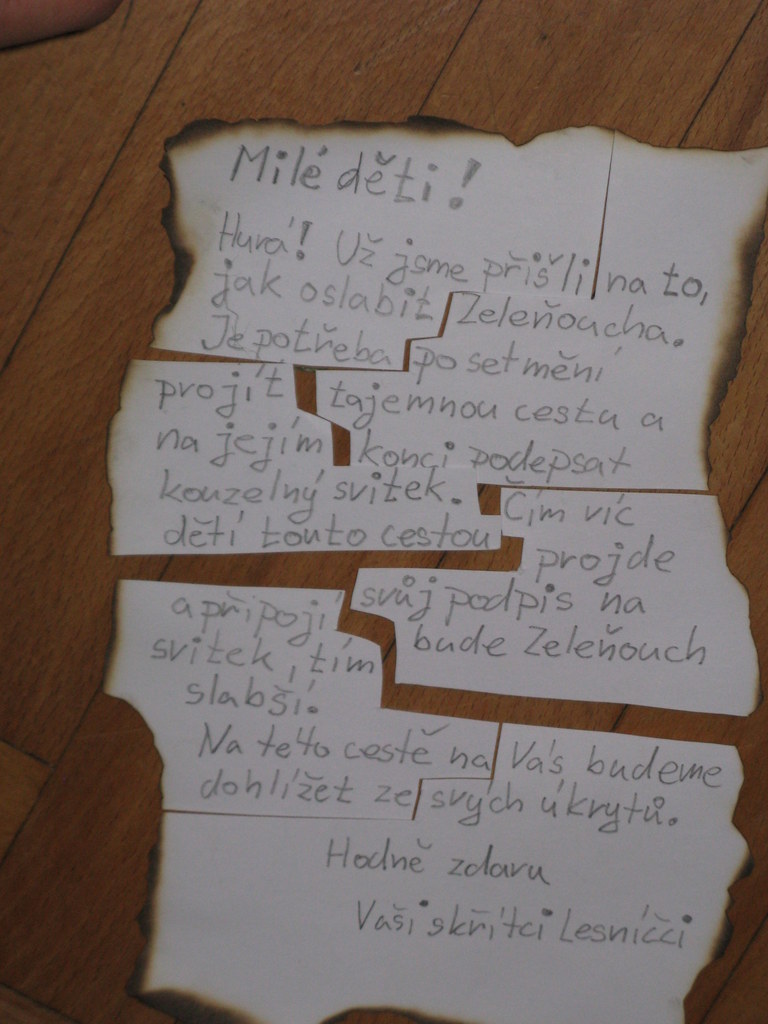 Milé děti!
Hurá! Už jsme přišli na to,
jak oslabit Zeleňoucha.
Je potřeba po setmění
projít tajemnou cestu a
na jejím konci podepsat
kouzelný svitek. Čím víc
dětí touto cestou projde
a připojí svůj podpis na
svitek, tím bude Zeleňouch
slabší.
Na této cestě na Vás budeme
dohlížet ze svých úkrytů.
Hodně zdaru
Vaši skřítci Lesníčci